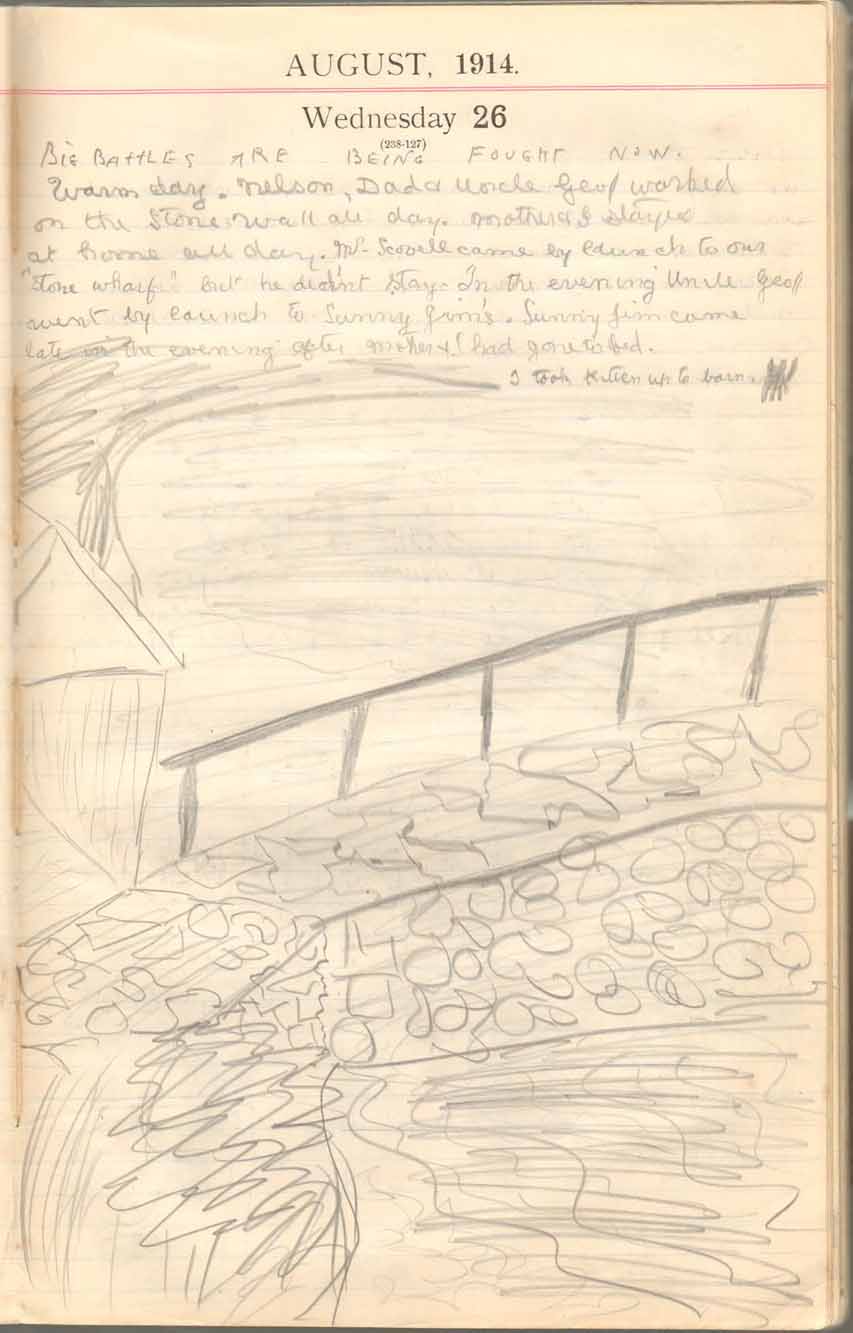 AUGUST, 1914.
Wednesday 26
(238-127)
BIG BATTLES ARE BEING FOUGHT NOW.
Warm day. Nelson, Dad & Uncle Geof worked
on the Stone wall all day. Mother & I stayed
at home all day. Mr. Scovell came by launch to our
"stone wharf" but he didn't stay. In the evening Uncle Geof
went by launch to Sunny Jim's. Sunny Jim came
late in the evening after mother & I had gone to bed.
I took Kitten up to barn.